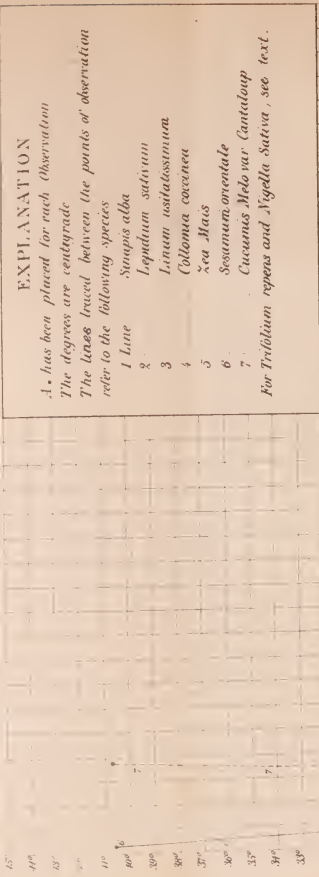 EXPLANATION
A • has been placed for each Observation
The degrees are centigrade
The lines traced between the points of observation
refer to the following species
1 Line Sinapis alba
2 . Lepidium sativum
3 Linum usitatissimum
4 Collomia coccinea
5 Zea Mais
6 . Sesamum orientale
7 . Cucumis Melo var Cantaloup
For Trifolium repens and Nigella Sativa, see text.
45°
44°
43°
41°
40°
39°
38°
37°
36°
35°
34°
33°
6
7
7